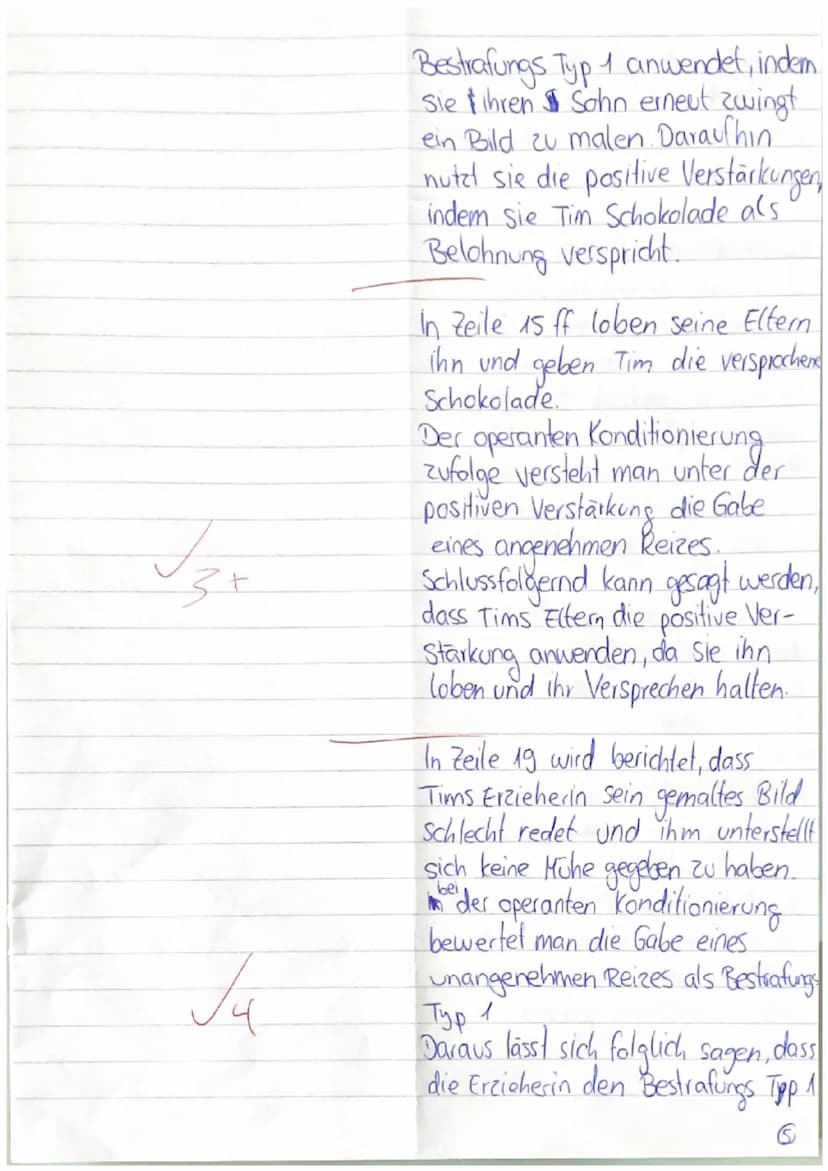 Bestrafungs Typ 1 anwendet, indem
sie ihren Sohn erneut zwingt
ein Bild zu malen. Daraufhin
nutzt sie die positive Verstärkungen,
indem sie Tim Schokolade als
Belohnung verspricht.
In Zeile 15 ff loben seine Eltern
ihn und geben Tim die versprochene
Schokolade.
Der operanten Konditionierung
zufolge versteht man unter der
positiven Verstärkung die Gabe
eines angenehmen Reizes.
√3+
Schlussfolgernd kann gesagt werden,
dass Tims Eltern die positive Ver-
stärkung anwenden, da sie ihn
loben und ihr Versprechen halten.
In Zeile 19 wird berichtet, dass
Tims Erzieherin sein gemaltes Bild
schlecht redet und ihm unterstellt
sich keine Mühe gegeben zu haben.
bei der operanten Konditionierung
bewertet man die Gabe eines
unangenehmen Reizes als Bestrafungs
Typ 1
√4
Daraus lässt sich folglich sagen, dass
die Erzieherin den Bestrafungs Typ 1
5